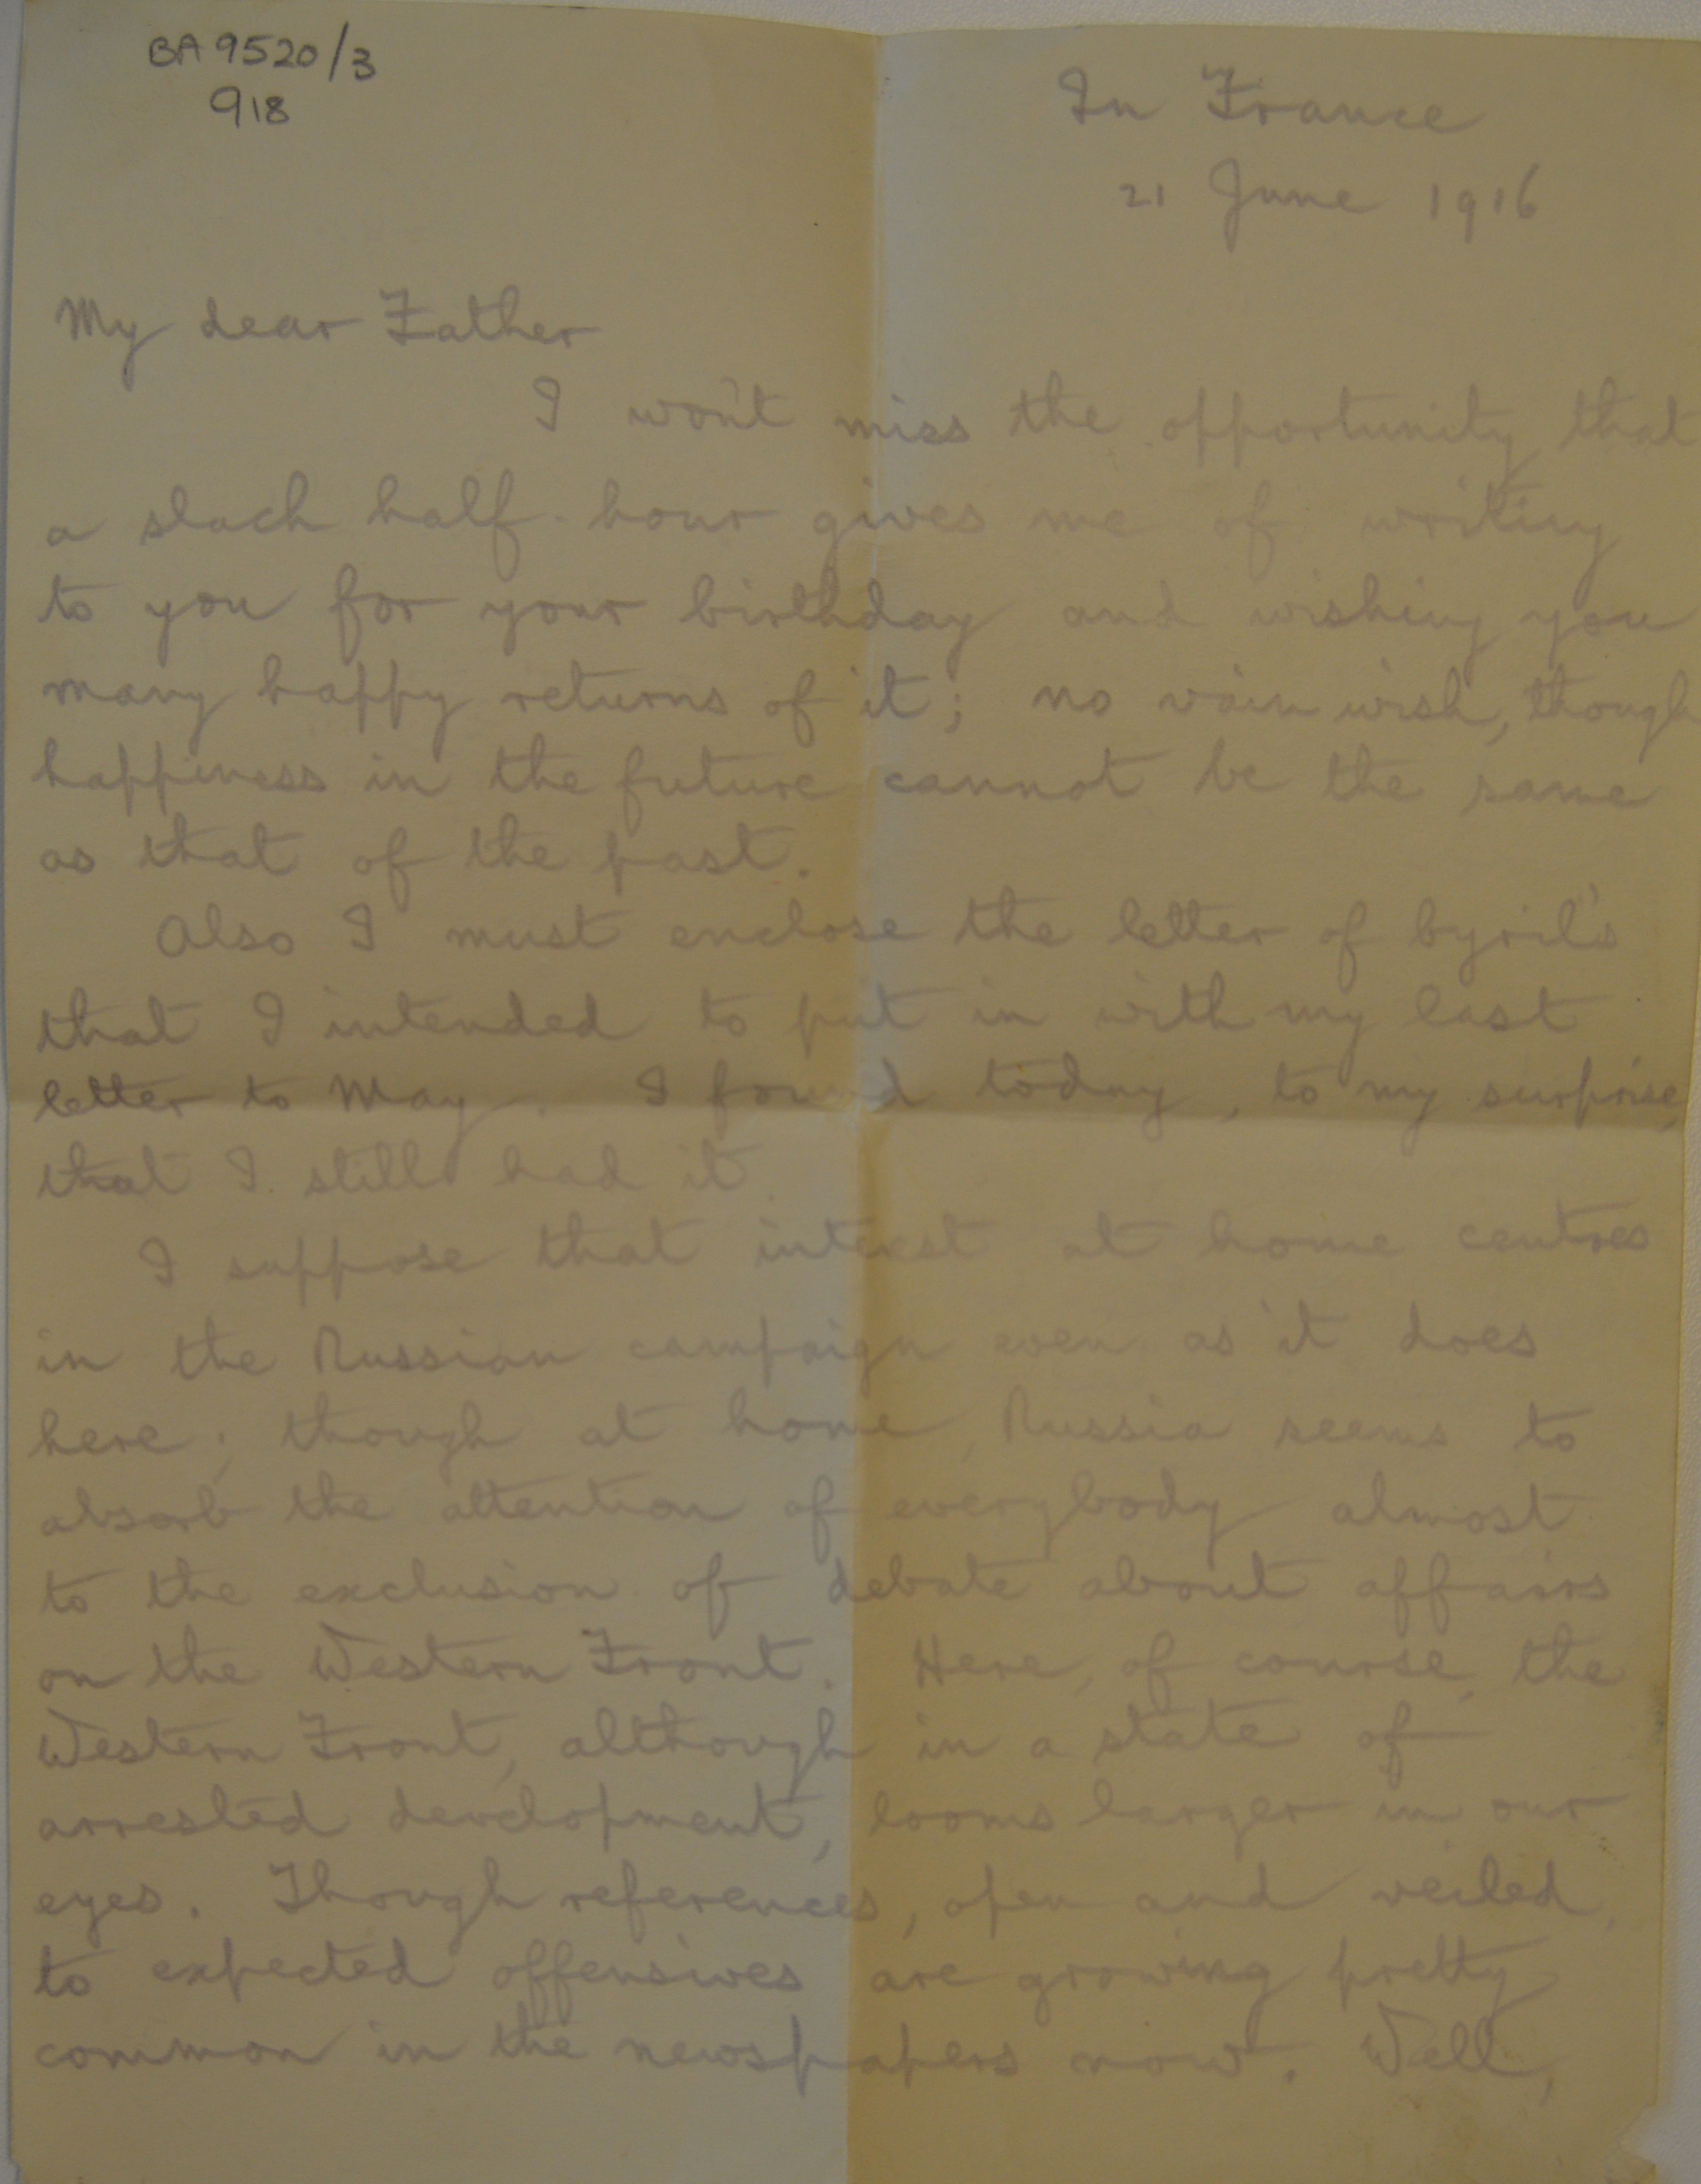 BA 9520/3
918
In France
21 June 1916
My dear Father
I won't miss the opportunity that
a slack half-hour gives me of writing
to you for your birthday and wishing you
many happy returns of it; no vain wish, though
happiness in the future cannot be the same
as that of the past.
Also I must enclose the letter of Cyril's
that I intended to put in with my last
letter to May. I found today, to my surprise,
that I still had it.
I suppose that interest at home centres
in the Russian campaign even as it does
here; though at home, Russia seems to
absorb the attention of everybody almost
to the exclusion of debate about affairs
on the Western Front. Here, of course, the
Western Front, although in a state of
arrested development, looms larger in our
eyes. Though references, open and veiled,
to expected offensives are growing pretty
common in the newspapers now. Well,